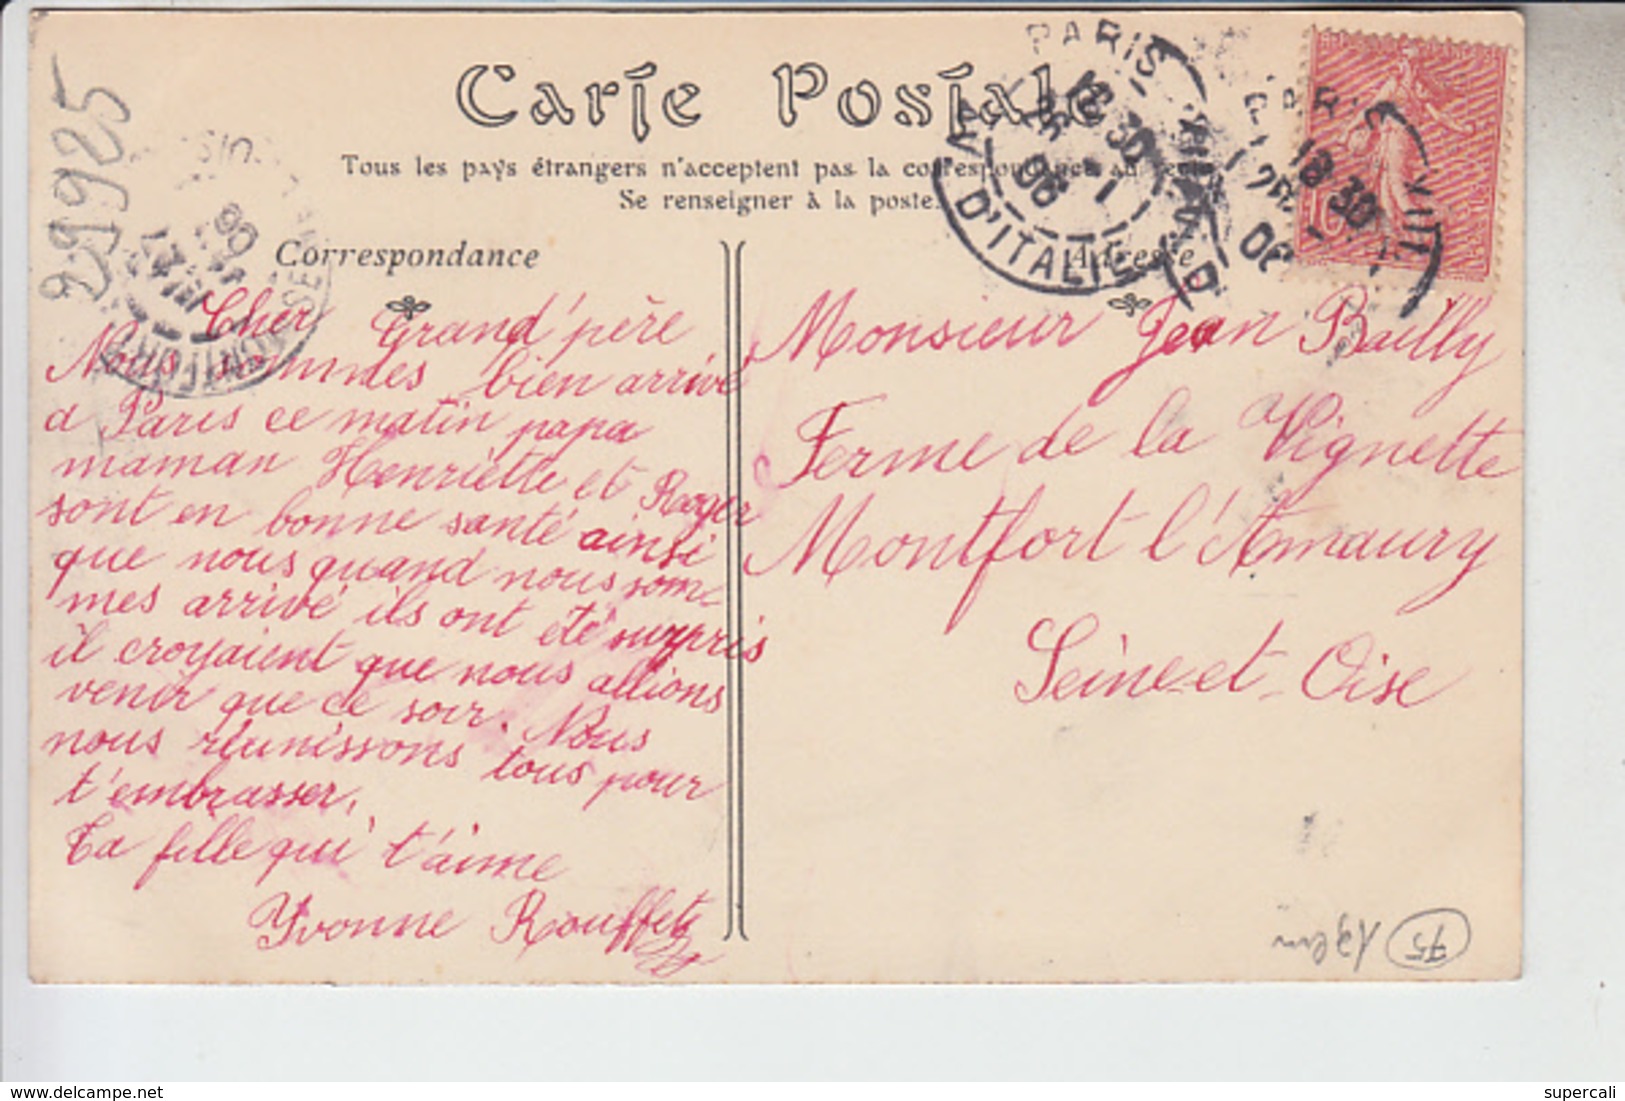 Carte Postale
Tous les pays étrangers n'acceptent pas la correspondance au
Se renseigner à la poste.
29925
Correspondance
Cher Grand'père
Nous sommes bien arrivé
a Paris ce matin papa
maman Henriette et Roger
sont en bonne santé ainsi
que nous quand nous som-
mes arrivé ils ont été surpris
il croyaient que nous allions
venir que ce soir. Nous
nous réunissons tous pour
t'embrasser,
Ta fille qui t'aime
Yvonne Rouffet
Adresse
Monsieur Jean Bailly
Ferme de la Vignette
Montfort l'Amaury
Seine-et-Oise
PARIS
18 30
26 1
06
D'ITALIE
PARIS VIII
18 30
06
06
75
supercali
delcampe.net